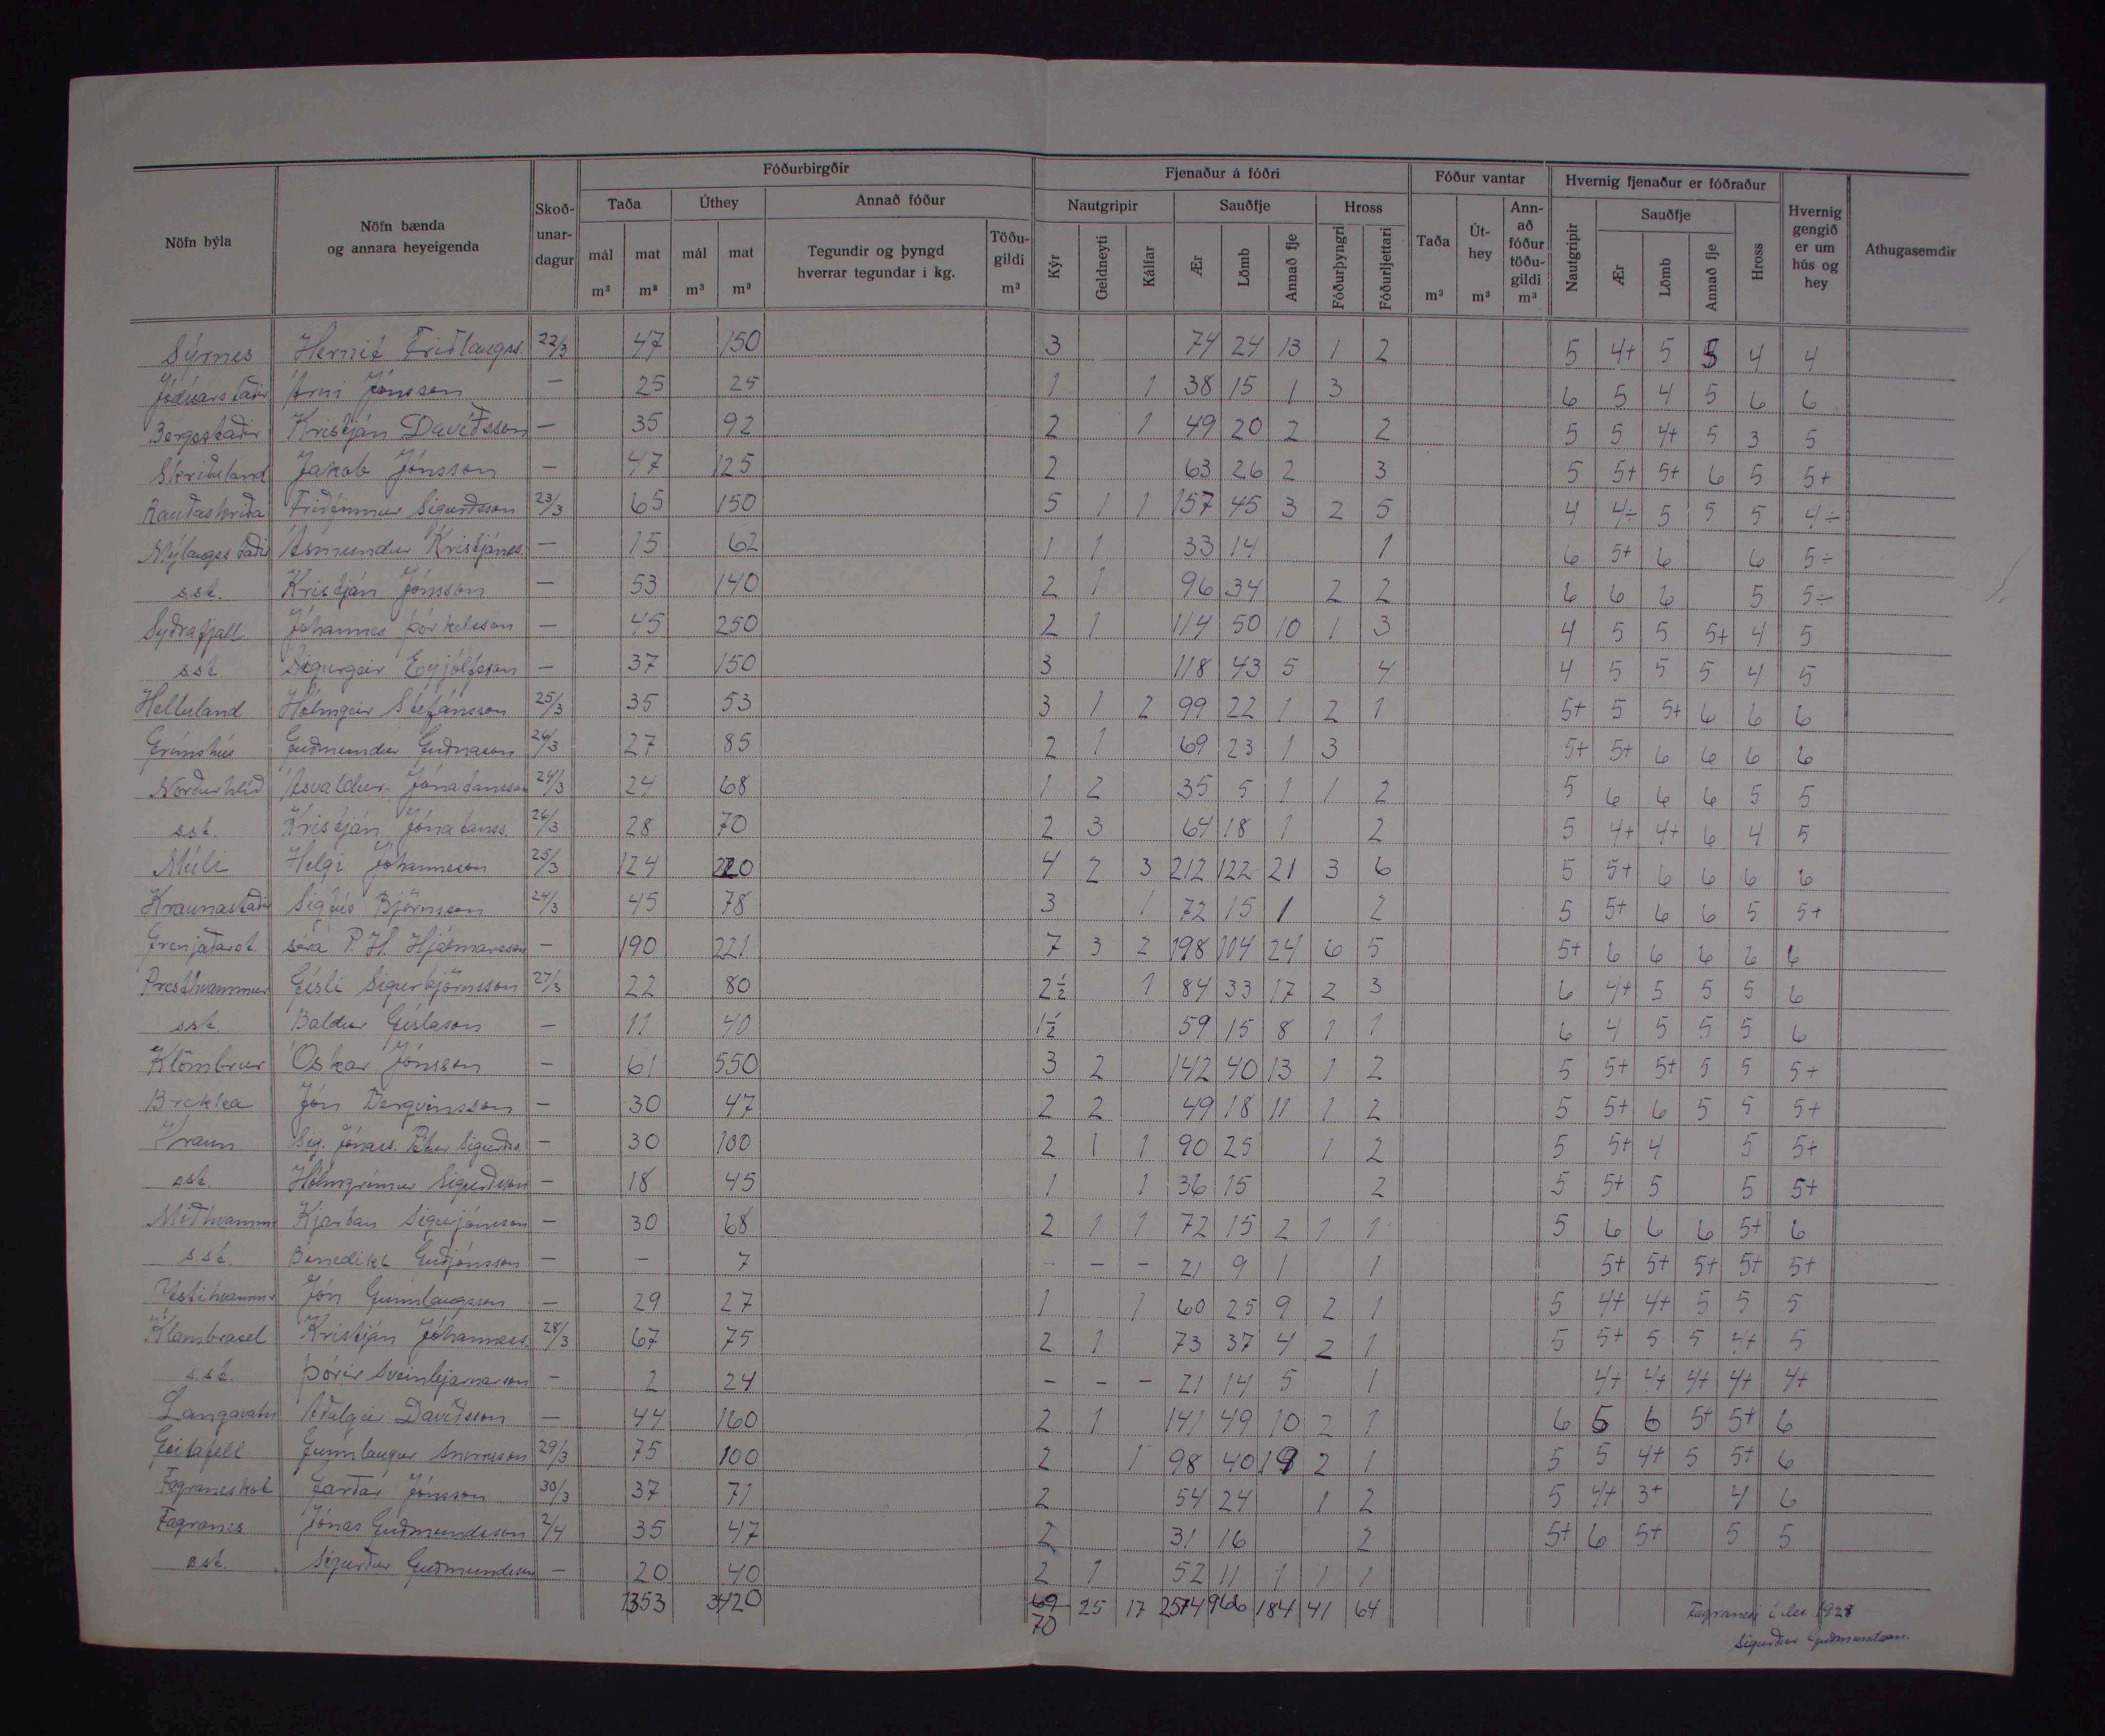 Nöfn býla
Nöfn bænda og annara heyeigenda
Skoð-unar-dagur
Fóðurbirgðir
Taða
mál m³
mat m³
Úthey
mál m³
mat m³
Annað fóður
Tegundir og þyngd hverrar tegundar í kg.
Töðu-gildi m³
Fjenaður á fóðri
Nautgripir
Kýr
Geldneyti
Kálfar
Sauðfje
Ær
Lömb
Annað fje
Hross
Fóðurþyngri
Fóðurljettari
Fóður vantar
Taða m³
Út-hey m³
Ann-að fóður töðu-gildi m³
Hvernig fjenaður er fóðraður
Nautgripir
Sauðfje
Ær
Lömb
Annað fje
Hross
Hvernig gengið er um hús og hey
Athugasemdir
Sýrnes Hernit Friðlaugss. 22/3 47 150 3 74 24 13 1 2 5 4+ 5 5 4 4
Jódísarstaðir Árni Jónsson — 25 25 1 1 38 15 1 3 6 5 4 5 6 6
Bergsstaðir Kristján Davíðsson — 35 92 2 1 49 20 2 2 5 5 4+ 5 3 5
Skriðuland Jakob Jónsson — 47 125 2 63 26 2 3 5 5+ 5+ 6 5 5+
Rauðaskriða Friðfinnur Sigurðsson 23/3 65 150 5 1 1 157 45 3 2 5 4 4÷ 5 5 5 4÷
Mýlaugsstaðir Ásmundur Kristjánss. — 15 62 1 1 33 14 1 6 5+ 6 6 5÷
s.st. Kristján Jónsson — 53 140 2 1 96 34 2 2 6 6 6 5 5÷
Syðrafjall Jóhannes Þorkelsson — 45 250 2 1 114 50 10 1 3 4 5 5 5+ 4 5
s.st. Sigurgeir Eyjólfsson — 37 150 3 118 43 5 4 4 5 5 5 4 5
Helluland Hólmgeir Stefánsson 25/3 35 53 3 1 2 99 22 1 2 1 5+ 5 5+ 6 6 6
Grímshús Guðmundur Guðnason 26/3 27 85 2 1 69 23 1 3 5+ 5+ 6 6 6 6
Norðurhlíð Ásvaldur Jónatansson 24/3 24 68 1 2 35 5 1 1 2 5 6 6 6 5 5
s.st. Kristján Jónatanss. 26/3 28 70 2 3 64 18 1 2 5 4+ 4+ 6 4 5
Múli Helgi Jóhannesson 25/3 124 220 4 2 3 212 122 21 3 6 5 5+ 6 6 6 6
Kraunastaðir Sigfús Björnsson 24/3 45 78 3 1 72 15 1 2 5 5+ 6 6 5 5+
Grenjaðarst. séra P. H. Hjálmarsson — 190 221 7 3 2 198 104 24 6 5 5+ 6 6 6 6 6
Presthvammur Gísli Sigurbjörnsson 27/3 22 80 2½ 1 84 33 17 2 3 6 4+ 5 5 5 6
s.st. Baldur Gíslason — 11 40 1½ 59 15 8 1 1 6 4 5 5 5 6
Klömbrur Óskar Jónsson — 61 550 3 2 142 40 13 1 2 5 5+ 5+ 5 5 5+
Brekka Jón Bergvinsson — 30 47 2 2 49 18 11 1 2 5 5+ 6 5 5 5+
Hraun Sig. Jónass. Pétur Sigurðss. — 30 100 2 1 1 90 25 1 2 5 5+ 4 5 5+
s.st. Hólmgrímur Sigurðsson — 18 45 1 1 36 15 2 5 5+ 5 5 5+
Miðhvammur Kjartan Sigurjónsson — 30 68 2 1 1 72 15 2 1 1 5 6 6 6 5+ 6
s.st. Benedikt Guðjónsson — — 7 — — — 21 9 1 1 5+ 5+ 5+ 5+ 5+
Ystihvammur Jón Gunnlaugsson — 29 27 1 1 60 25 9 2 1 5 4+ 4+ 5 5 5
Klambrasel Kristján Jóhanness. 28/3 67 75 2 1 73 37 4 2 1 5 5+ 5 5 5
s.st. Þórir Sveinbjarnarson — 2 24 — — — 21 14 5 1 4+ 4+ 4+ 4+ 4+
Langavatn Aðalgeir Davíðsson — 44 160 2 1 141 49 10 2 1 6 5 6 5+ 5+ 6
Geitafell Gunnlaugur Snorrason 29/3 75 100 2 1 98 40 2 1 5 5 4+ 5 5+ 6
Fagraneskot Garðar Jónsson 30/3 37 71 2 54 24 1 2 5 4+ 3+ 4 6
Fagranes Jónas Guðmundsson 2/4 35 47 2 31 16 2 5+ 6 5+ 5 5
s.st. Sigurður Guðmundsson — 20 40 2 1 52 11 1 1 1
1353 3420 69 25 17 2574 966 184 41 64
70
Fagranesi í 1928
Sigurður Guðmundsson.